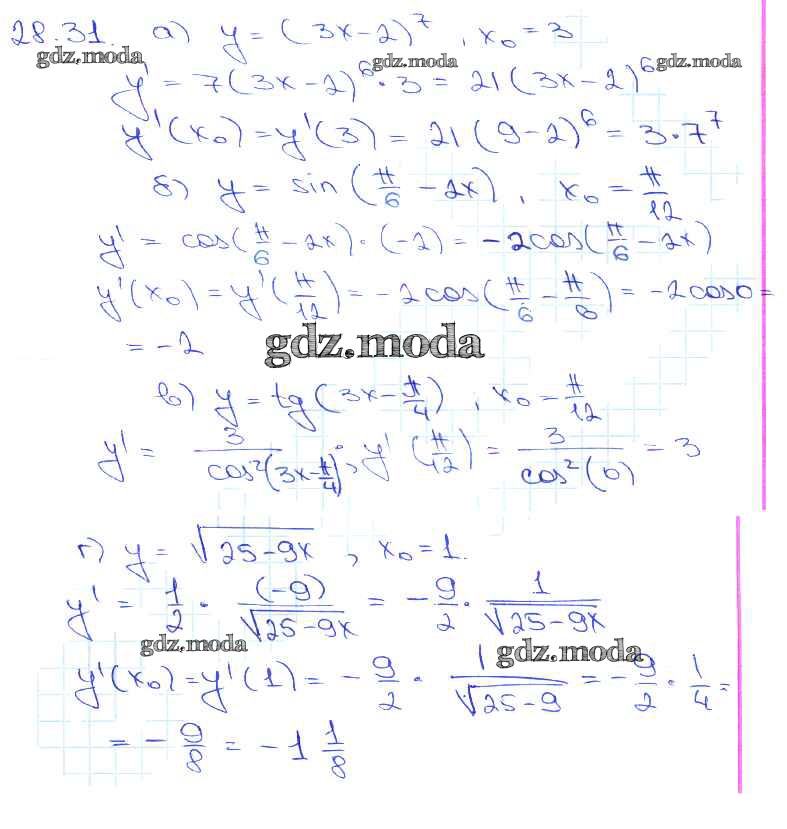 28.31. а) y = (3x-2)^7, x₀ = 3
gdz.moda
y' = 7(3x-2)^6 · 3 = 21(3x-2)^6
gdz.moda gdz.moda
y'(x₀) = y'(3) = 21(9-2)^6 = 3·7^7
б) y = sin(π/6 - 2x), x₀ = π/12
y' = cos(π/6 - 2x)·(-2) = -2cos(π/6 - 2x)
y'(x₀) = y'(π/12) = -2cos(π/6 - π/6) = -2cos0 =
= -2
gdz.moda
в) y = tg(3x - π/4), x₀ = π/12
y' = 3/cos²(3x - π/4); y'(π/12) = 3/cos²(0) = 3
г) y = √(25-9x), x₀ = 1.
y' = 1/2 · (-9)/√(25-9x) = -9/2 · 1/√(25-9x)
gdz.moda gdz.moda
y'(x₀) = y'(1) = -9/2 · 1/√(25-9) = -9/2 · 1/4 =
= -9/8 = -1 1/8